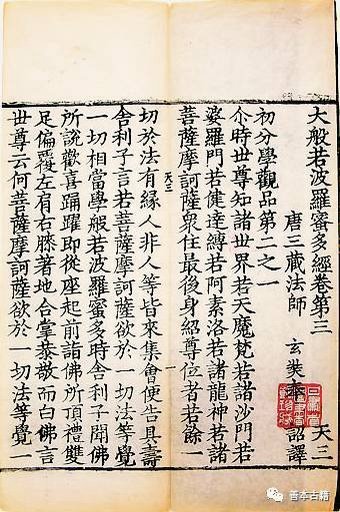 大般若波羅蜜多經卷第三 天三
唐三藏法師 玄奘奉 詔譯
初分學觀品第二之一
尒時世尊知諸世界若天魔梵若諸沙門若
婆羅門若健達縛若阿素洛若諸龍神若諸
菩薩摩訶薩眾住最後身紹尊位者若餘一
天三 一
切於法有緣人非人等皆來集會便告具壽
舍利子言若菩薩摩訶薩欲於一切法等覺
一切相當學般若波羅蜜多時舍利子聞佛
所說歡喜踊躍即從座起前詣佛所頂禮雙
足偏覆左肩右膝著地合掌恭敬而白佛言
世尊云何菩薩摩訶薩欲於一切法等覺一
善本古籍